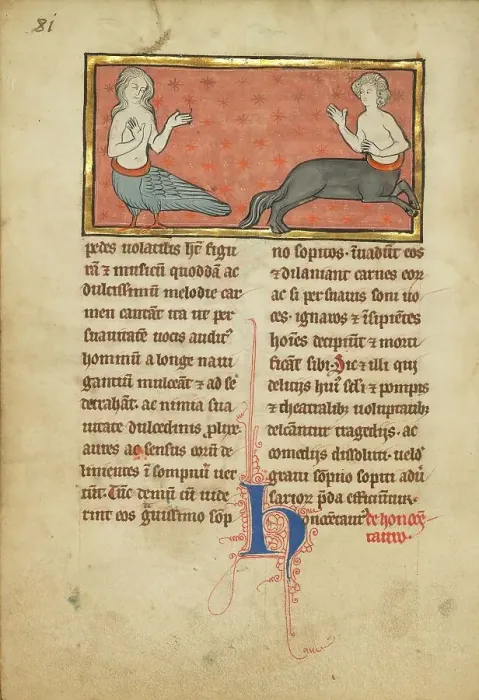 81
pedes uolatilis hn̄t figu
rā ⁊ musicū quoddā ac
dulcissimū melodie car
men cantāt ita ut per
suauitatē uocis audit᷒
hominū a longe naui
gantiū mulceāt ⁊ ad se
detrahāt. ac nimia sua
uitate dulcedinis ꝓlixe
aures ac sensus eorū de
linientes ī sompnū uer
tūt. Tūc demū cū uide
rint eos gᵃuissimo sōp
no sopitos. īuadūt eos
⁊ dilaniant carnes eoꝝ
ac si persuauis soni uo
ces. ignaros ⁊ īsipiētes
hoīes decipiūt ⁊ morti
ficāt sibi. Sic ⁊ illi qui
delitijs hui᷒ scl̄i ⁊ pompis
⁊ theatralibꝫ uoluptatibꝫ
delcāntur tragedijs. ac
comedijs dissoluti.
graui sōpno sopiti adū
sarioꝝ p̄da efficiuntur.
honocentaur᷒ de honocen
tauro.